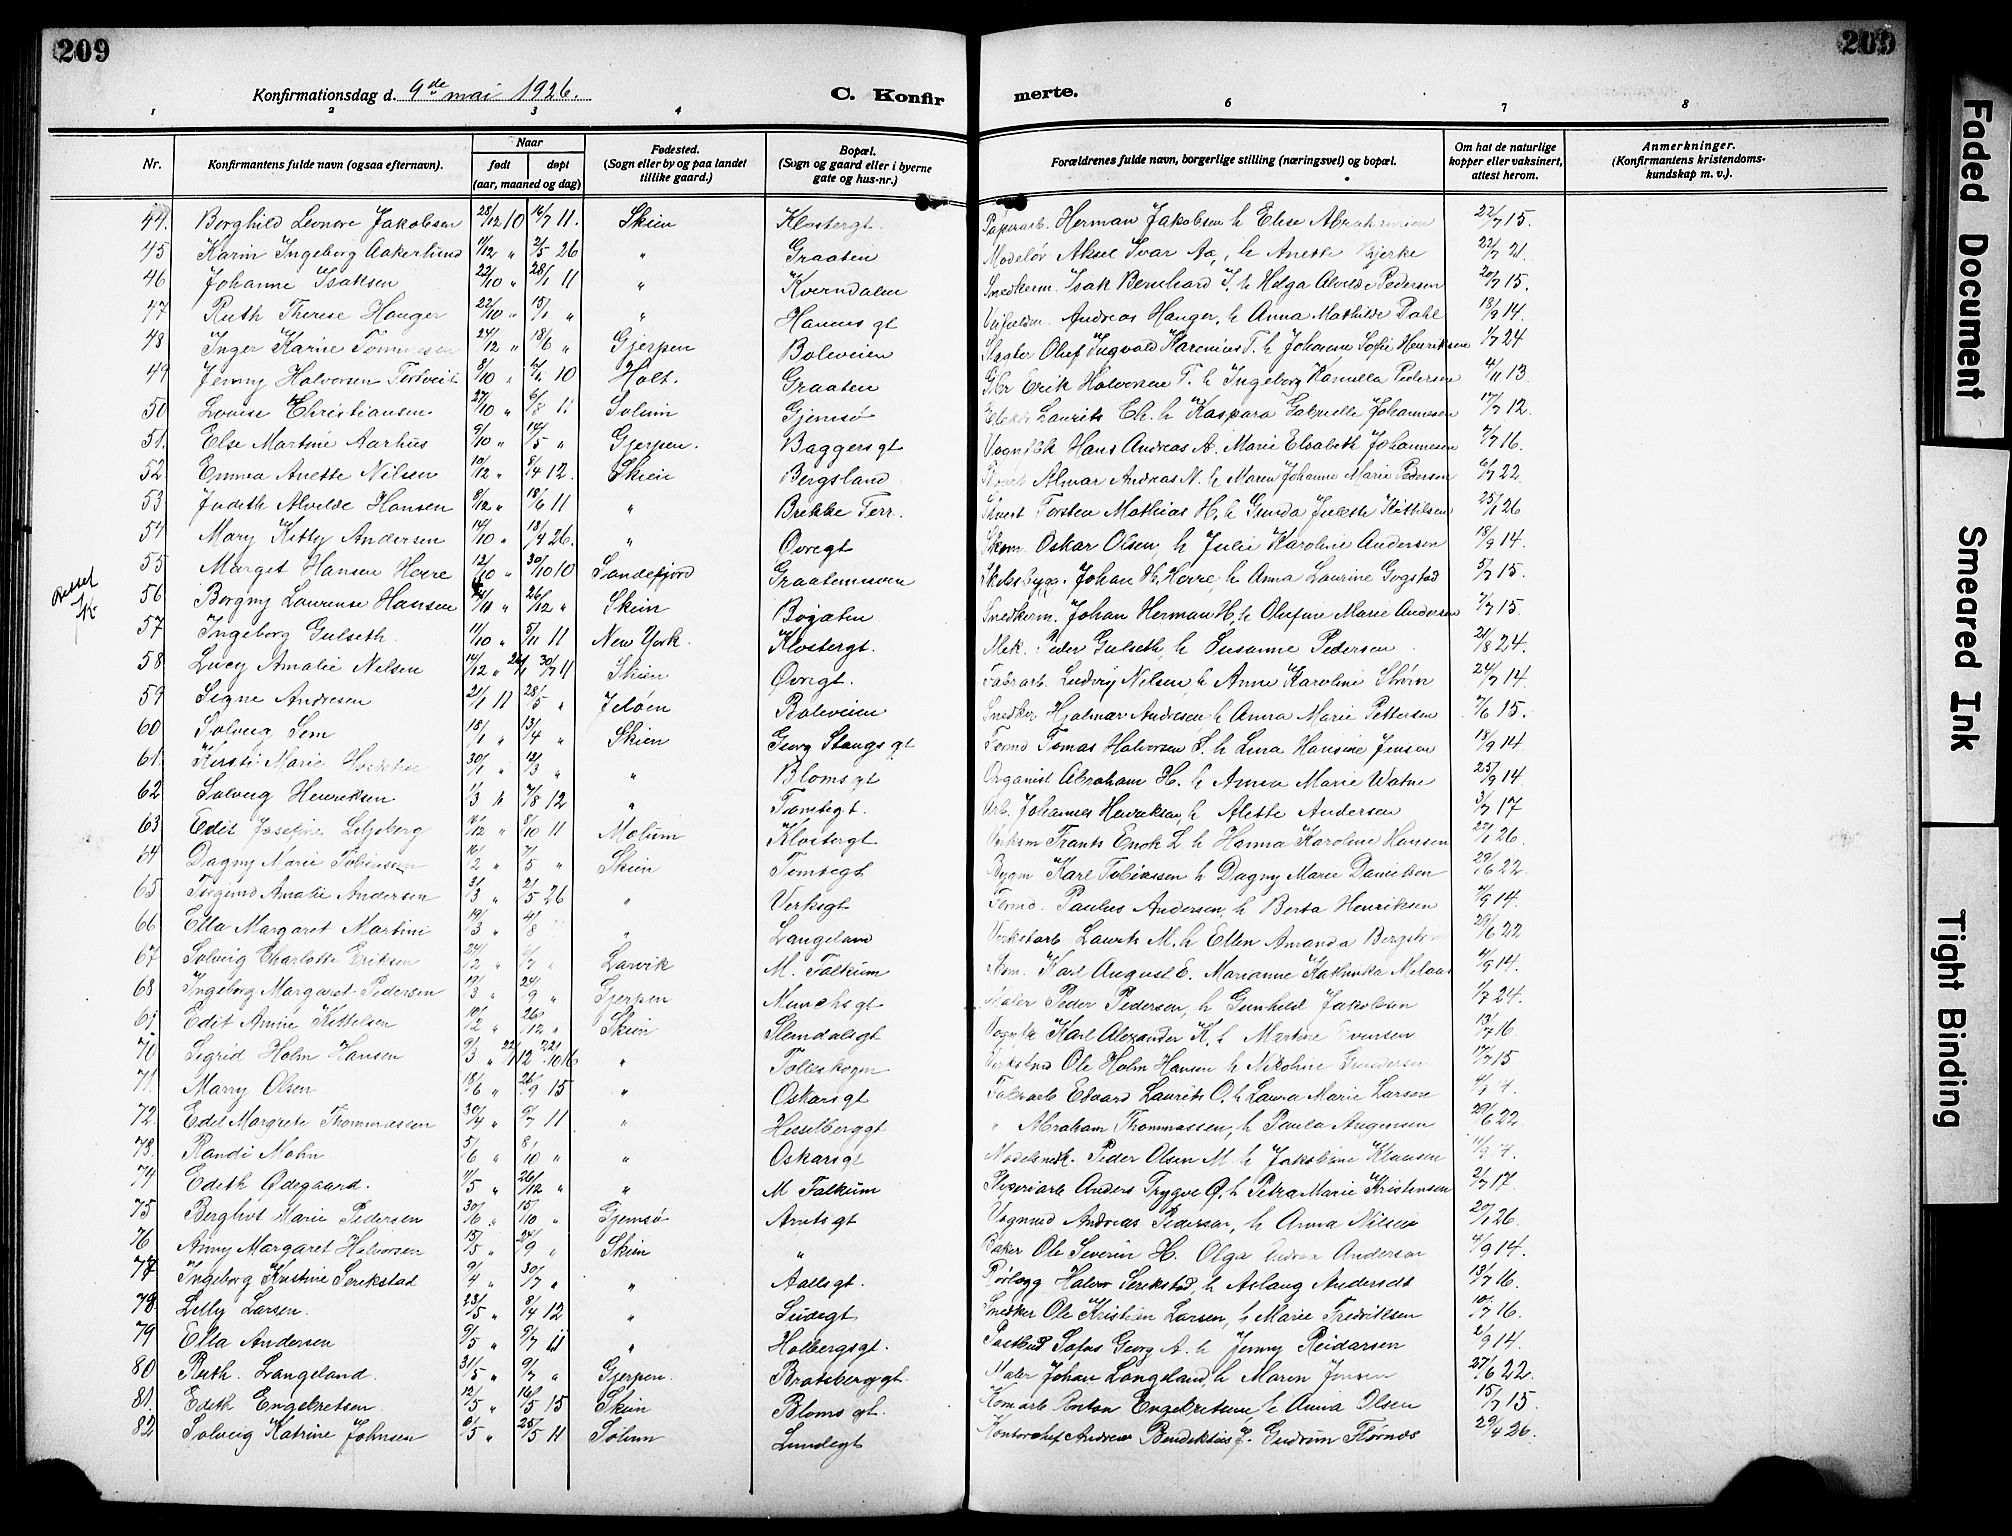 209
209
Konfirmationsdag d. 9de mai 1926.
C. Konfir
merte.
1 2 3 4 6 7 8
Nr. Konfirmantens fulde navn (ogsaa efternavn). Naar født døpt (aar, maaned og dag) Fødested. (Sogn eller by og paa landet tillike gaard.) Bopæl. (Sogn og gaard eller i byerne gate og hus-nr.) Forældrenes fulde navn, borgerlige stilling (næringsvei) og bopæl. Om hat de naturlige kopper eller vaksinert, attest herom. Anmerkninger. (Konfirmantens kristendoms-kundskap m. v.).
44. Borghild Leonore Jakobsen 28/12 10 16/7 11. Skien Klostergt. Herman Jakobsen h Elise 22/7 15.
45 Karin Ingeborg Aakerlund 11/12 " 2/5 26 " Graaten Modeløv Aksel Ivar Aa., h Anette Bjerke 22/7 21.
46 Johanne Isaksen 22/10 " 28/1 11 " Kverndalen Snedkerm. Isak Bernhard I. h Helga Alvilde Pedersen 20/7 15.
47 Ruth Therese Hauger 22/10 " 15/1 " " Hauens gt Andreas Hauger, h Anna Mathilde Dahl 18/9 14.
48 Inger Karine 24/12 " 18/6 " Gjerpen Boleveien Slagter Oluf Ingvald Karenius T. h Johanne Sofie Henriksen 1/7 24
49 Jenny Halvorsen 8/10 " 10 Holt. Graaten Erik Halvorsen T. h Ingeborg Kamilla Pedersen 4/11 13
50 Louise Christiansen 27/10 " 6/8 11 Solum Gjemsø Laurits Ch. h Kaspara Gabrielle Johannesen 17/7 12.
51. Else Martine Aarhus 9/10 " 14/5 " Gjerpen. Baggersgt Hans Andreas A. Marie Elisabeth Johannesen 7/7 16.
52 Emma Anette Nilsen 10/12 " 8/4 12. Skien Bergsland Almar Andreas N. h Maren Johanne Marie Pedersen 6/7 22
53 Judith Alvilde Hansen 8/12 " 18/6 11 " Brekke Terr. Torsten Mathias H. h Gunda Kittilsen 25/1 26
54 Mary Kitty Andersen 14/10 " 18/4 26. " Øvregt Skom. Oskar Olsen, h Julie Karoline Andersen 18/9 14.
55 Marget Hansen Herre 12/10 " 30/10 10 Sandefjord Johan H. Herre, h Anna Laurine Gogstad 5/7 15.
56 Borgny Laurense Hansen 26/12 " Skien Bøgaten Snedkerm. Johan Herman H. h Olufine Marie Andersen 7/7 15.
57 Ingeborg Gulseth. 11/10 " 5/11 11 New York. Klostergt. Mek. Peder Gulseth, h Susanne Pedersen 21/8 24.
58 Lucy Amalie Nelsen 14/12 " 30/7 11 Skien Øvregt. Fabrarb. Ludvig Nelsen, h Anne Karoline 24/7 14
59 Signe Andresen 21/1 11 28/5 " Jeløen Boleveien Snedker Hjalmar Andresen, h Anna Marie Pettersen 7/6 15.
60 Solveig Sem 18/1 " 13/4 " Skien Georg Stangs gt Formd Tomas Halvorsen S. h Lina Hansine Jensen 18/9 14
61. Kirsti Marie 30/1 " 12/3 " " Bloms gt Organist Abraham H. h Anna Marie Watne 25/9 14.
62 Solveig Henriksen 1/3 " 7/8 12 " Tomtegt. Arb. Johannes Henriksen, h Alette Andersen 3/7 17
63. Edit Josefine Liljeberg 16/12 " 8/10 11 Klostergt Frants Enok L. h Hanna Karoline Hansen 22/1 26.
64 Dagny Marie Tobiassen 16/2 " 7/5 " Skien Tomtegt Bygm Karl Tobiassen h Dagny Marie Danielsen 29/6 22.
65 Amalie Andersen 3/3 " 2/5 26 " Verksgt Formd. Paulus Andersen, h Berta Henriksen 4/9 14.
66 Ella Margaret Martini 19/3 " 4/8 " Langeland Verkstarb Laurits M. h Ellen Amanda 29/6 22
67 Solveig Charlotte Eriksen 24/2 " Larvik M. Falkum Skom. Karl August E. Marianne 4/9 14.
68 Ingeborg Margaret Pedersen 19/3 " 24/9 " Gjerpen Munchsgt Maler Peder Pedersen, h Gunhild Jakobsen 1/7 24.
69 Edit Annie Kittelsen 10/2 " 26/12 " Skien Slemdalsgt Karl Alexander K. h Martine Evensen 13/7 16.
70 Sigrid Holm Hansen 9/3 " " Ole Holm Hansen h Nikoline Gundersen 17/7 15
71. Marry Olsen 18/6 " 26/9 15 " Oskarsgt Fabrarb Edvard Laurits O. h Laura Marie Larsen
72. Edel Margrete Thommassen 30/4 " 9/7 11 " Hesselberggt " Abraham Thommassen, h Paula Jugensen 29/6 22
73. Randi Mohn 5/6 " 8/10 " " Oskarsgt Modelsnek. Peder Olsen M. h Jakobine Klausen
74 Edith Ødegaard. 14/5 " 26/12 " " M Falkum Anders Trygve Ø. h Petra Marie Kristensen 2/7 17
75 Berghot Marie Pedersen 30/6 " 15/10 " Gjemsø Amtsgt Andreas Pedersen, h Anna Nilsen 29/1 26.
76 Anny Margaret Halvorsen 15/5 " 24/9 " Skien " Baker Ole Severin H. Olga Andersen 4/9 14.
77 Ingeborg Kristine Serikstad 9/4 " 30/7 " " Aallsgt. Rørlegg Halvor Serikstad, h Aslaug Andersdt 13/7 16.
78. Lilly Larsen. 23/5 " 8/4 12 " Luδegt Snedker Ole Kristian Larsen, h Marie Fredriksen 10/7 16.
79 Ella Andersen 9/5 " 9/7 11 " Holbergsgt. Postbud Sofus Georg A. h Jenny Reidarsen 2/9 14.
80 Ruth. Langeland. 31/5 " 9/7 " Gjerpen. Bratsberggt. Maler Johan Langeland, h Maren Jensen 27/6 22.
81. Edith Engebretsen. 12/5 " 16/5 15 Skien Bloms gt. Anton Engebretsen h Anna Olsen 15/7 15.
82 Solveig Katrine Johnsen 6/5 " 25/5 11 Solum Lundegt Kontorchef Andreas Bendiktius J. Gudrun Flørnæs 29/4 26.
Faded Document
Smeared Ink
Tight Binding